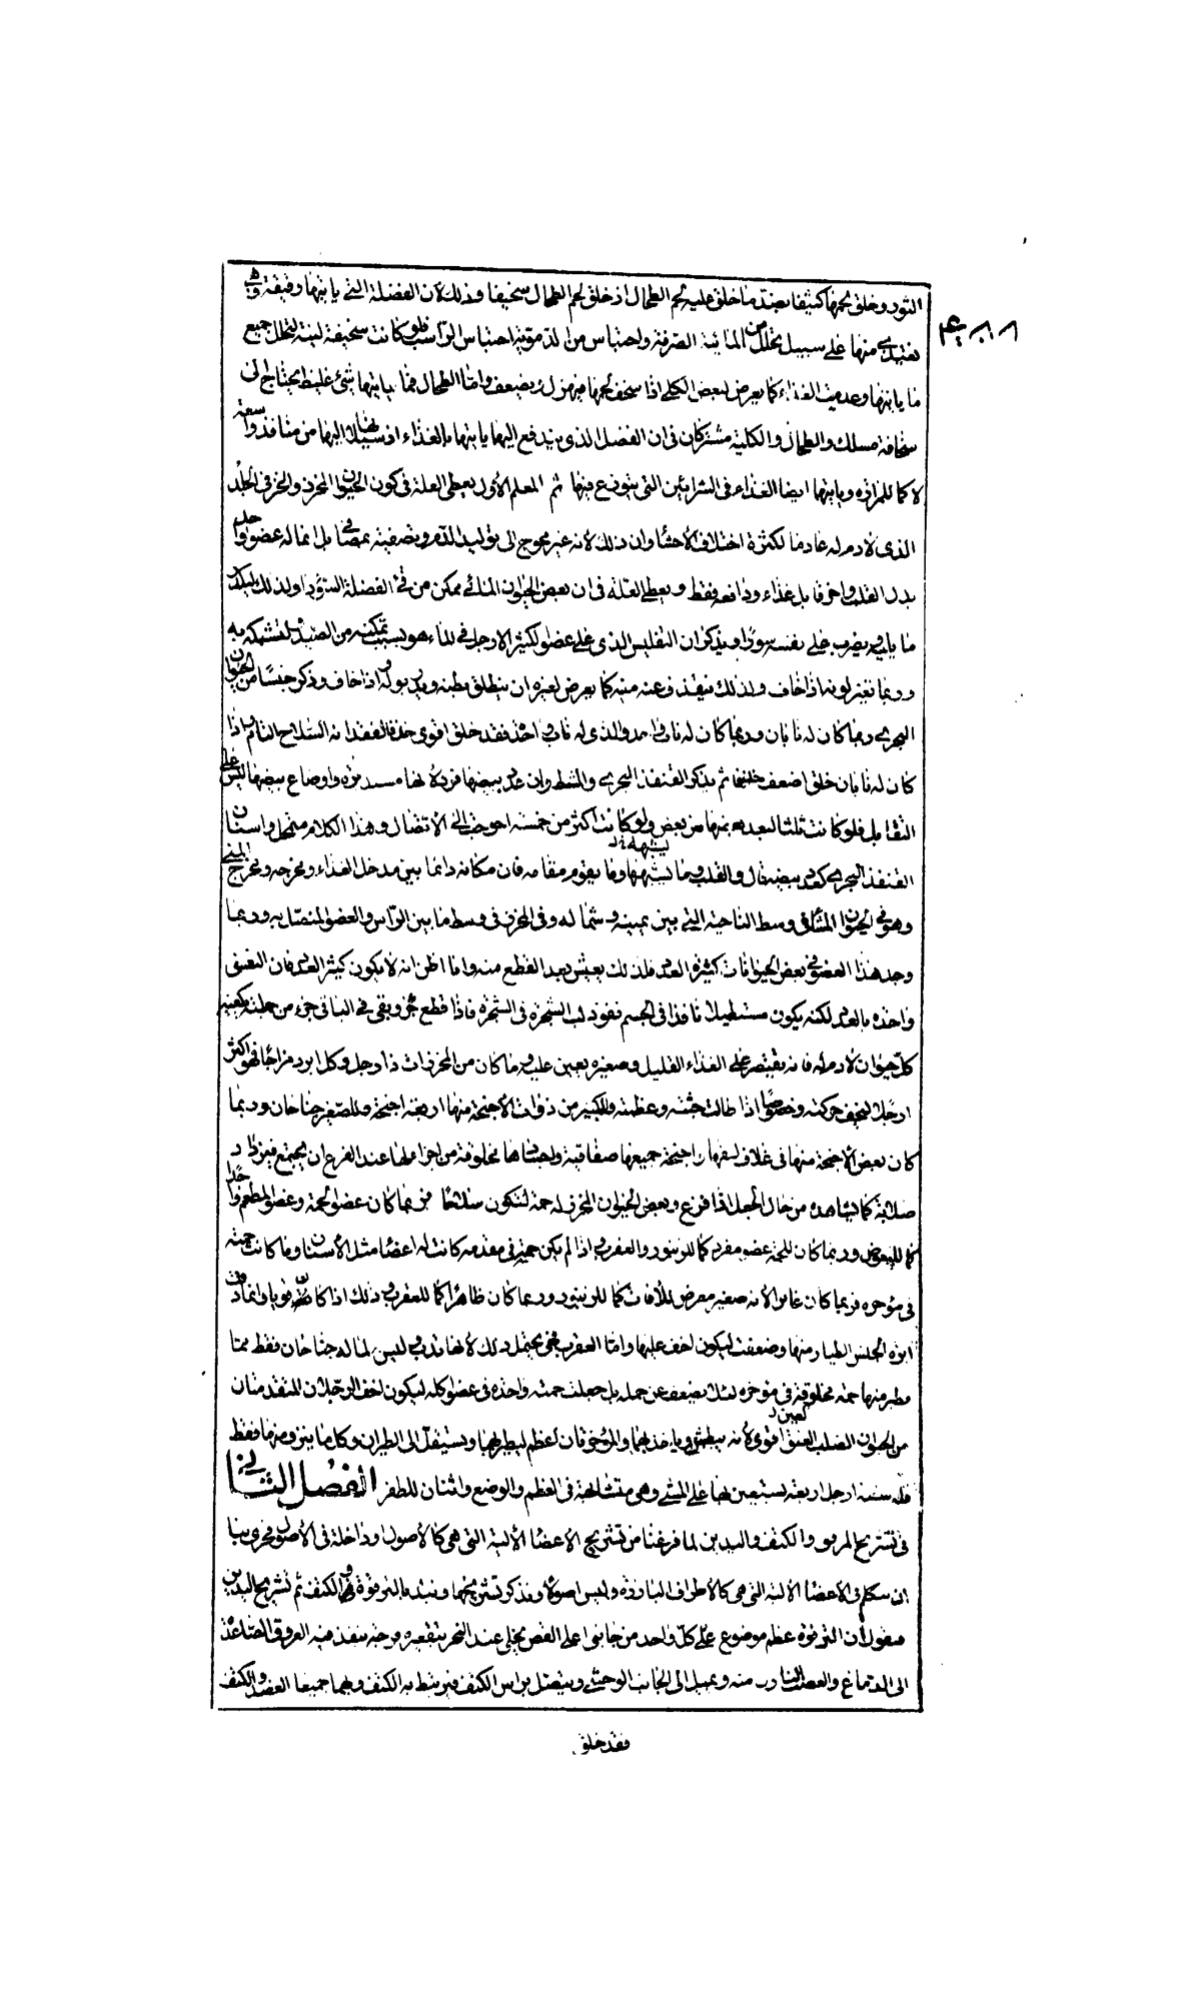 الثور وخلق لحمها كثيفا بضد ما خلق عليه لحم الطحال اذ خلق لحم الطحال سخيفا وذلك لان الفضلة التي يأتيها رقيقة وهي
تغتذي منها على سبيل تحلل من المائية الصرفة واحتباس من الدموية احتباس الراسب فلو كانت سخيفة لينة لتحلل جميع
ما يأتيها وعدمت الغذاء كما يعرض لبعض الكلى اذا سخف لحمها فيهزل ويضعف واما الطحال فما يأتيها شئ غليظ يحتاج الى
سخافة مسلك والطحال والكلية مشتركان في ان الفضل الذي يندفع اليها يأتيها بالغذاء اذ سبيلها اليها من منافذ واسعة
لا كما للمرارة ويأتيها ايضا الغذاء في الشرايين التي يتوزع فيها ثم المعلم الاول يعطي العلة في كون الحيوان المحزز والخزفي الجلد
الذي لا دم له عادما لكثرة اختلاف الاحشاء وان ذلك لانه غير محوج الى توليد الدم وتصفيته بمصافي بل انما له عضو واحد
بدل القلب واخر قابل غذاء ودافعه فقط ويعطي العلة في ان بعض الحيوان المائي ممكن من قئ الفضلة السوداء ولذلك
ما يليه ويضرب على نفسه سورا ويذكر ان التفليس الذي على عضو لكثير الارجل في الماء هو بسبب تمكنه من الصيد وتمسكه به
وربما تغير لونه اذا خاف ولذلك يقذف عنه منيه كما يعرض لغيره ان ينطلق بطنه ويدر بوله اذا خاف وذكر جنسا من الحيوان
البحري ربما كان له نابان وربما كان له ناب واحد والذي له ناب واحد فقد خلق اقوى حذقا لفقدانه السلاح التام واذا
كان له نابان خلق اضعف ثم يذكر القنفذ البحري والشط وان عدد بيضها فردة لها واوضاع بيضها ليس على
التقابل فلو كانت ثلثا لبعد بعضها من بعض ولو كانت اكثر من خمسة احوجت الى الاتصال وهذا الكلام متمحل واسنان
القنفذ البحري كعدد بيضه قال والقلب وما يشبهها وما يقوم مقامه فان مكانه دائما بين مدخل الغذاء ومخرجه ومخرج المني
وهو في الحيوان المشاء في وسط الناحية التي بين يمينه وشماله وفي المحزز في وسط ما بين الراس والعضو المتصل به وربما
وجد هذا العضو في بعض الحيوانات كثير العدد فلذلك يعيش بعد القطع منه وانا اظن انه لا يكون كثير العدد فان النفس
واحدة بالعدد لكنه يكون مستطيلا نافذا في الجسم نفوذ لب الشجرة في الشجرة فاذا قطع جزء وبقي في الباقي جزء من جملته
كل حيوان لا دم له فانه يقتصر على الغذاء القليل وصغيره يعين عليه وما كان من المحززات ذا ارجل وكل ابرد مزاجا فهو اكثر
ارجلا ليخف حركته وخصوصا اذا طالت جثته وعظمت وللكبير من ذوات الاجنحة منها اربعة اجنحة وللصغير جناحان وربما
كان بعض الاجنحة منها في غلاف واجنحة جميعها صفاقية واحشاها مخلوقة من اجزاء لها عند الفزع ان يجتمع فيزداد
صلابة كما يشاهده من حال الجعل اذا فزع وبعض الحيوان المحزز له حمة لتكون سلاحا فربما كان عضو الحمة وعضو المطعم واحدا
كما للبعوض وربما كان للحمة عضو مفرد كما للزنبور والعقرب واذا لم يكن حمته في مقدمه كانت له اعضاء مثل الاسنان وما كانت حمته
في مؤخره فربما كان غائرا لانه صغير معرض للآفات كما للزنبور وربما كان ظاهرا كما للعقرب وذلك اذا كان
ابرة الجنس الطيار منها وضعفت ليكون اخف عليها واما العقرب فهي يحتمل ذلك لانها تدب وليس لما له جناحان فقط مما
يطير منها حمة مخلوقة في مؤخره لئلا يضعف عن حمله بل جعلت حمته واحدة في عضو اكله ليكون اخف الرجلان المتقدمتان
من الحيوان الصلب العين اقوى لانه يبطش ويأخذ بهما والمؤخرتان اعظم ليطير بهما ويستقل الى الطيران وكل ما ينزو منها فقط
فله ستة ارجل اربعة يستعين بها على المشي وهي متشابهة في العظم والوضع واثنان للطفر الفصل الثاني
في تشريح الترقوة والكتف واليدين لما فرغنا من تشريح الاعضاء الالية التي هي كالاصول وداخلة في الاصول فحري بنا
ان نتكلم في الاعضاء الالية التي هي كالاطراف البارزة وليس اصولا ونذكر تشريحها ونبدء بالترقوة والكتف ثم تشريح اليدين
فنقول ان الترقوة عظم موضوع على كل واحد من جانبي اعلى القص يخلي عند النحر بتقعيره فرجة ينفذ فيه العروق الصاعدة
الى الدماغ والعصب النازل منه ويميل الى الجانب الوحشي ويتصل براس الكتف فيرتبط به الكتف وبهما جميعا العضد والكتف
فقد خلق